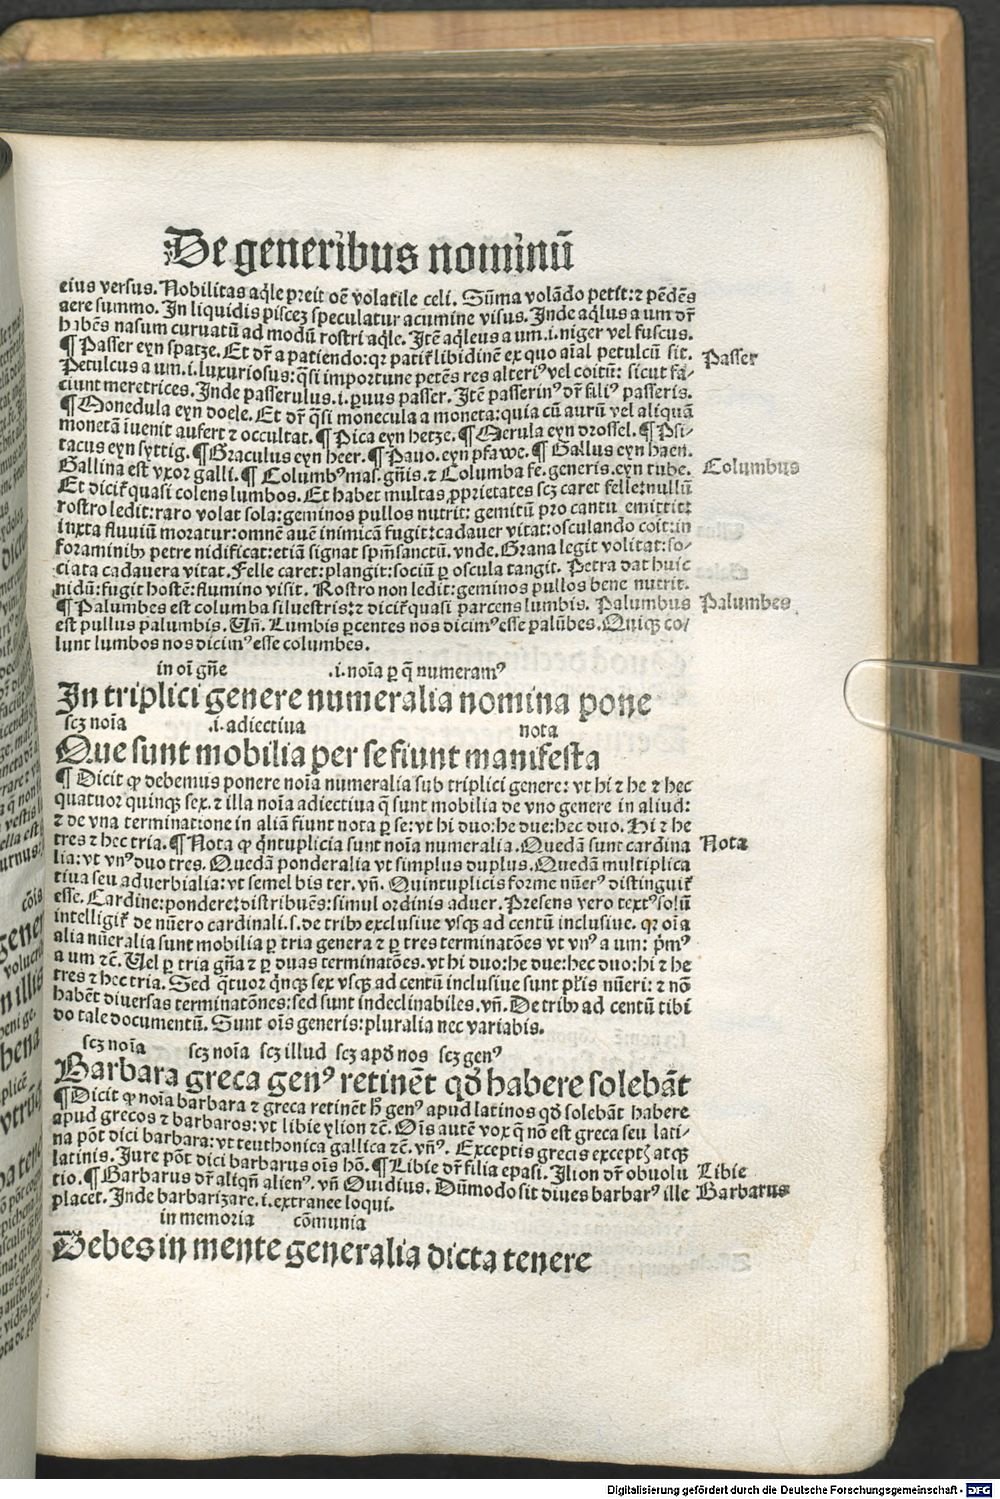 De generibus nominū
eius versus. Nobilitas aq̄le preit oē volatile celi. Sūma volādo petit: ⁊ pēdēs
aere summo. In liquidis piscez speculatur acumine visus. Inde aq̄lus a um dr̄
habēs nasum curuatū ad modū rostri aq̄le. Itē aq̄leus a um .i. niger vel fuscus.
¶ Passer eyn spatze. Et dr̄ a patiendo: qꝛ patit̄ libidinē ex quo aīal petulcū sit. Passer
Petulcus a um .i. luxuriosus: q̄si importune petēs res alteriꝰ vel coitū: sicut fa-
ciunt meretrices. Inde passerulus .i. ꝑuus passer. Itē passerinꝰ dr̄ filiꝰ passeris.
¶ Monedula eyn doele. Et dr̄ q̄si monecula a moneta: quia cū aurū vel aliquā
monetā iuenit aufert ⁊ occultat. ¶ Pica eyn hetze. ¶ Merula eyn drossel. ¶ Psi-
tacus eyn syttig. ¶ Graculus eyn heer. ¶ Pauo. eyn pfawe. ¶ Gallus eyn haen.
Gallina est vxor galli. ¶ Columbꝰ mas. gn̄is. ⁊ Columba fe. generis. eyn tube. Columbus
Et dicit̄ quasi colens lumbos. Et habet multas ꝓprietates scz caret felle: nullū
rostro ledit: raro volat sola: geminos pullos nutrit: gemitū pro cantu emittit:
iuxta fluuiū moratur: omnē auē inimicā fugit: cadauer vitat: osculando coit: in
foraminibꝫ petre nidificat: etiā signat spm̄sanctū. vnde. Grana legit volitat: so-
ciata cadauera vitat. Felle caret: plangit: sociū ꝑ oscula tangit. Petra dat huic
nidū: fugit hostē: flumino visit. Rostro non ledit: geminos pullos bene nutrit.
¶ Palumbes est columba siluestris: ⁊ dicit̄ quasi parcens lumbis. Palumbus Palumbes
est pullus palumbis. Uñ. Lumbis ꝑcentes nos dicimꝰ esse palūbes. Quiqꝫ co-
lunt lumbos nos dicimꝰ esse columbes.
in oī gn̄e .i. noīa ꝑ q̄ numeramꝰ
In triplici genere numeralia nomina pone
scz noīa .i. adiectiua nota
Que sunt mobilia per se fiunt manifesta
¶ Dicit ꝙ debemus ponere noīa numeralia sub triplici genere: vt hi ⁊ he ⁊ hec
quatuor quinqꝫ sex. ⁊ illa noīa adiectiua q̄ sunt mobilia de vno genere in aliud:
⁊ de vna terminatione in aliā fiunt nota ꝑ se: vt hi duo: he due: hec duo. Hi ⁊ he
tres ⁊ hec tria. ¶ Nota ꝙ q̄ntuplicia sunt noīa numeralia. Quedā sunt cardina Nota
lia: vt vnꝰ duo tres. Quedā ponderalia vt simplus duplus. Quedā multiplica
tiua seu aduerbialia: vt semel bis ter. vñ. Quintuplicis forme nūerꝰ distinguit̄
esse. Cardine: pondere: distribuēs: simul ordinis aduer. Presens vero textꝰ solū
intelligit̄ de nūero cardinali. s. de tribꝫ exclusiue vsqꝫ ad centū inclusiue. qꝛ oīa
alia nūeralia sunt mobilia ꝑ tria genera ⁊ ꝑ tres terminatōes vt vnꝰ a um: pꝛ̄mꝰ
a um ⁊c̄. Uel ꝑ tria gn̄a ⁊ ꝑ duas terminatōes. vt hi duo: he due: hec duo: hi ⁊ he
tres ⁊ hec tria. Sed q̄tuor q̄nqꝫ sex vsqꝫ ad centū inclusiue sunt pl̄ris nūeri: ⁊ nō
habēt diuersas terminatōnes: sed sunt indeclinabiles. vñ. De tribꝫ ad centū tibi
do tale documentū. Sunt oīs generis: pluralia nec variabis.
scz noīa scz noīa scz illud scz apd̄ nos scz genꝰ
Barbara greca genꝰ retinēt qd̄ habere solebāt
¶ Dicit ꝙ noīa barbara ⁊ greca retinēt h̄ genꝰ apud latinos qd̄ solebāt habere
apud grecos ⁊ barbaros: vt libie ylion ⁊c̄. Oīs autē vox q̄ nō est greca seu lati-
na pōt dici barbara: vt teuthonica gallica ⁊c̄. vñꝰ. Exceptis grecis exceptꝭ atqꝫ
latinis. Jure pōt dici barbara oīs hō. ¶ Libie dr̄ filia epasi. Ilion dr̄ obuolu Libie
tio. ¶ Barbarus dr̄ aliqn̄ alienꝰ. vñ Ouidius. Dūmodo sit diues barbarꝰ ille Barbarus
placet. Inde barbarizare .i. extranee loqui.
in memoria cōmunia
Debes in mente generalia dicta tenere
Digitalisierung gefördert durch die Deutsche Forschungsgemeinschaft - DFG